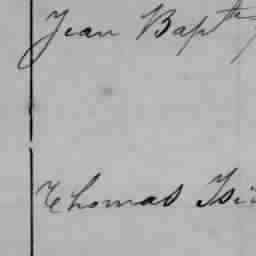 Jean Bapte
Thomas Isi